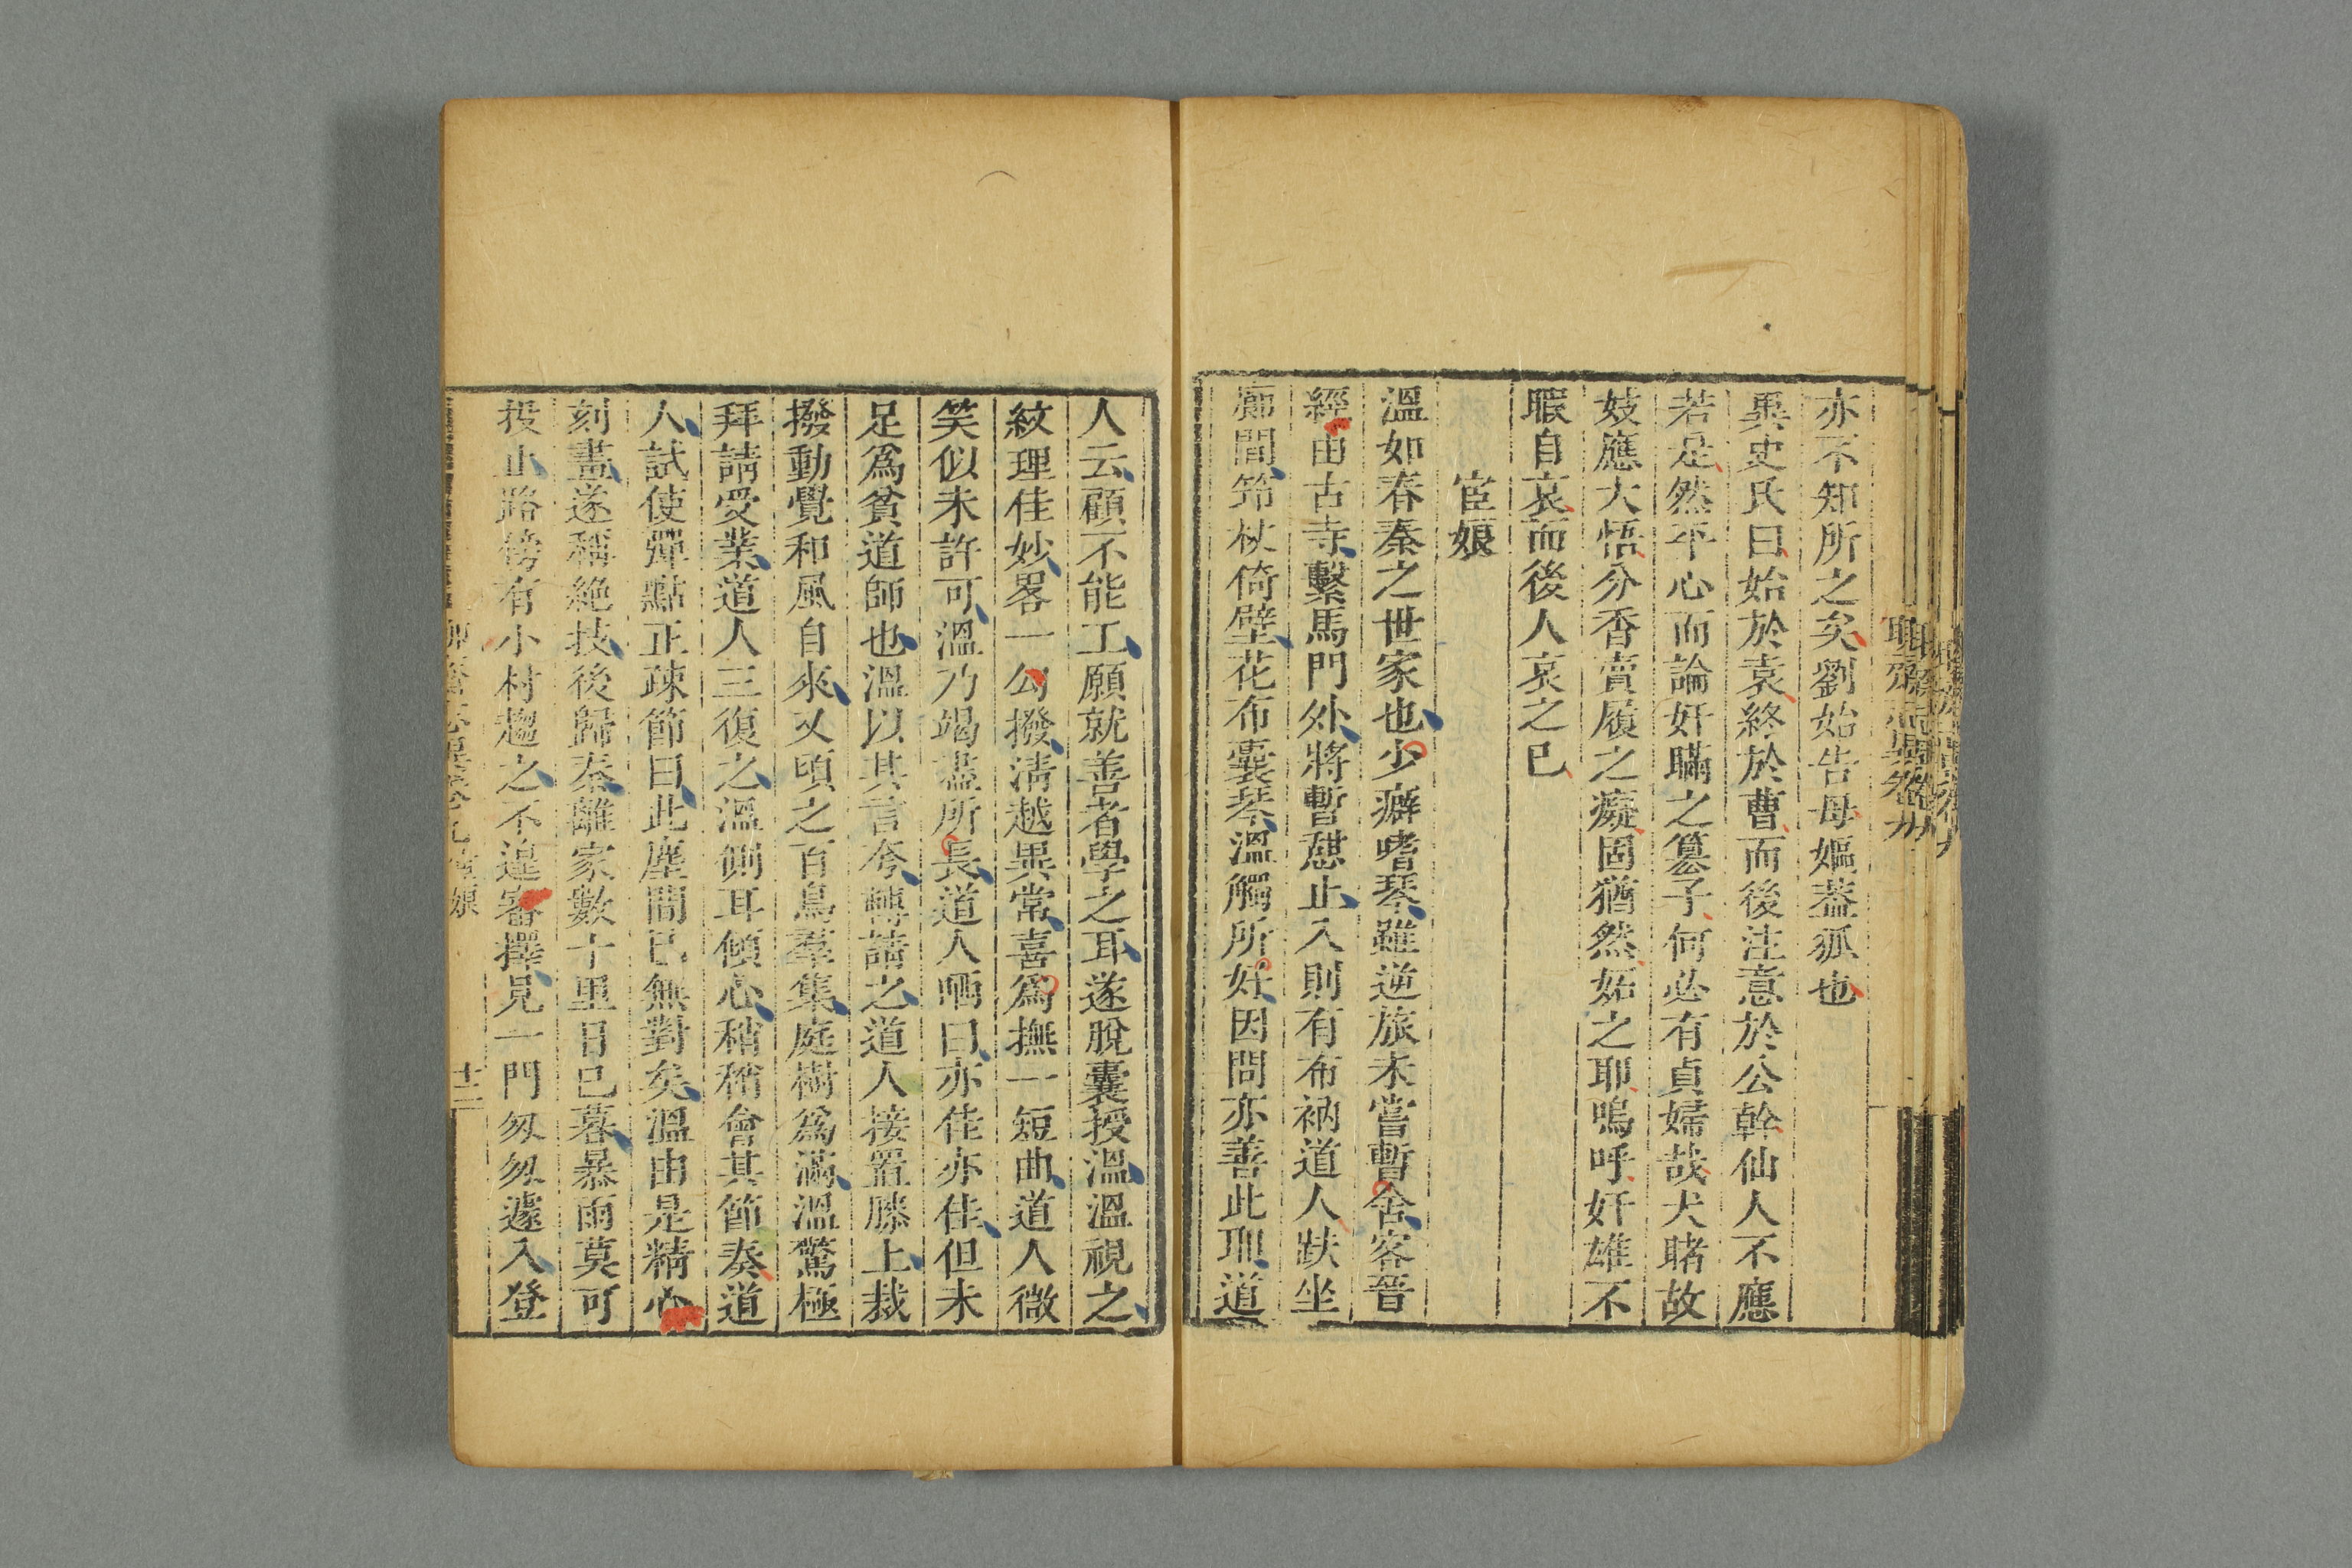 亦不知所之矣劉始告母嫗葢狐也
異史氏曰始於袁終於曹而後注意於公幹仙人不應
若是然平心而論奸瞞之簒子何必有貞婦哉犬睹故
妓應大悟分香賣履之癡固猶然妬之耶嗚呼奸雄不
暇自哀而後人哀之已
宦娘
溫如春秦之世家也少癖嗜琴雖逆旅未嘗暫舍客晉
經由古寺繫馬門外將暫憇止入則有布衲道人趺坐
廊間筇杖倚壁花布囊琴溫觸所好因問亦善此耶道
人云顧不能工願就善者學之耳遂脫囊授溫溫視之
紋理佳妙畧一勾撥淸越異常喜爲撫一短曲道人微
笑似未許可溫乃竭盡所長道人哂曰亦佳亦佳但未
足爲貧道師也溫以其言夸轉請之道人接置膝上裁
撥動覺和風自來又頃之百鳥羣集庭樹爲滿溫驚極
拜請受業道人三復之溫側耳傾心稍稍會其節奏道
人試使彈點正疎節曰此塵間已無對矣溫由是精心
刻畫遂稱絶技後歸秦離家數十里日已暮暴雨莫可
投止路傍有小村趨之不遑審擇見一門匆匆遽入登
聊齋志異卷九 宦娘 十二